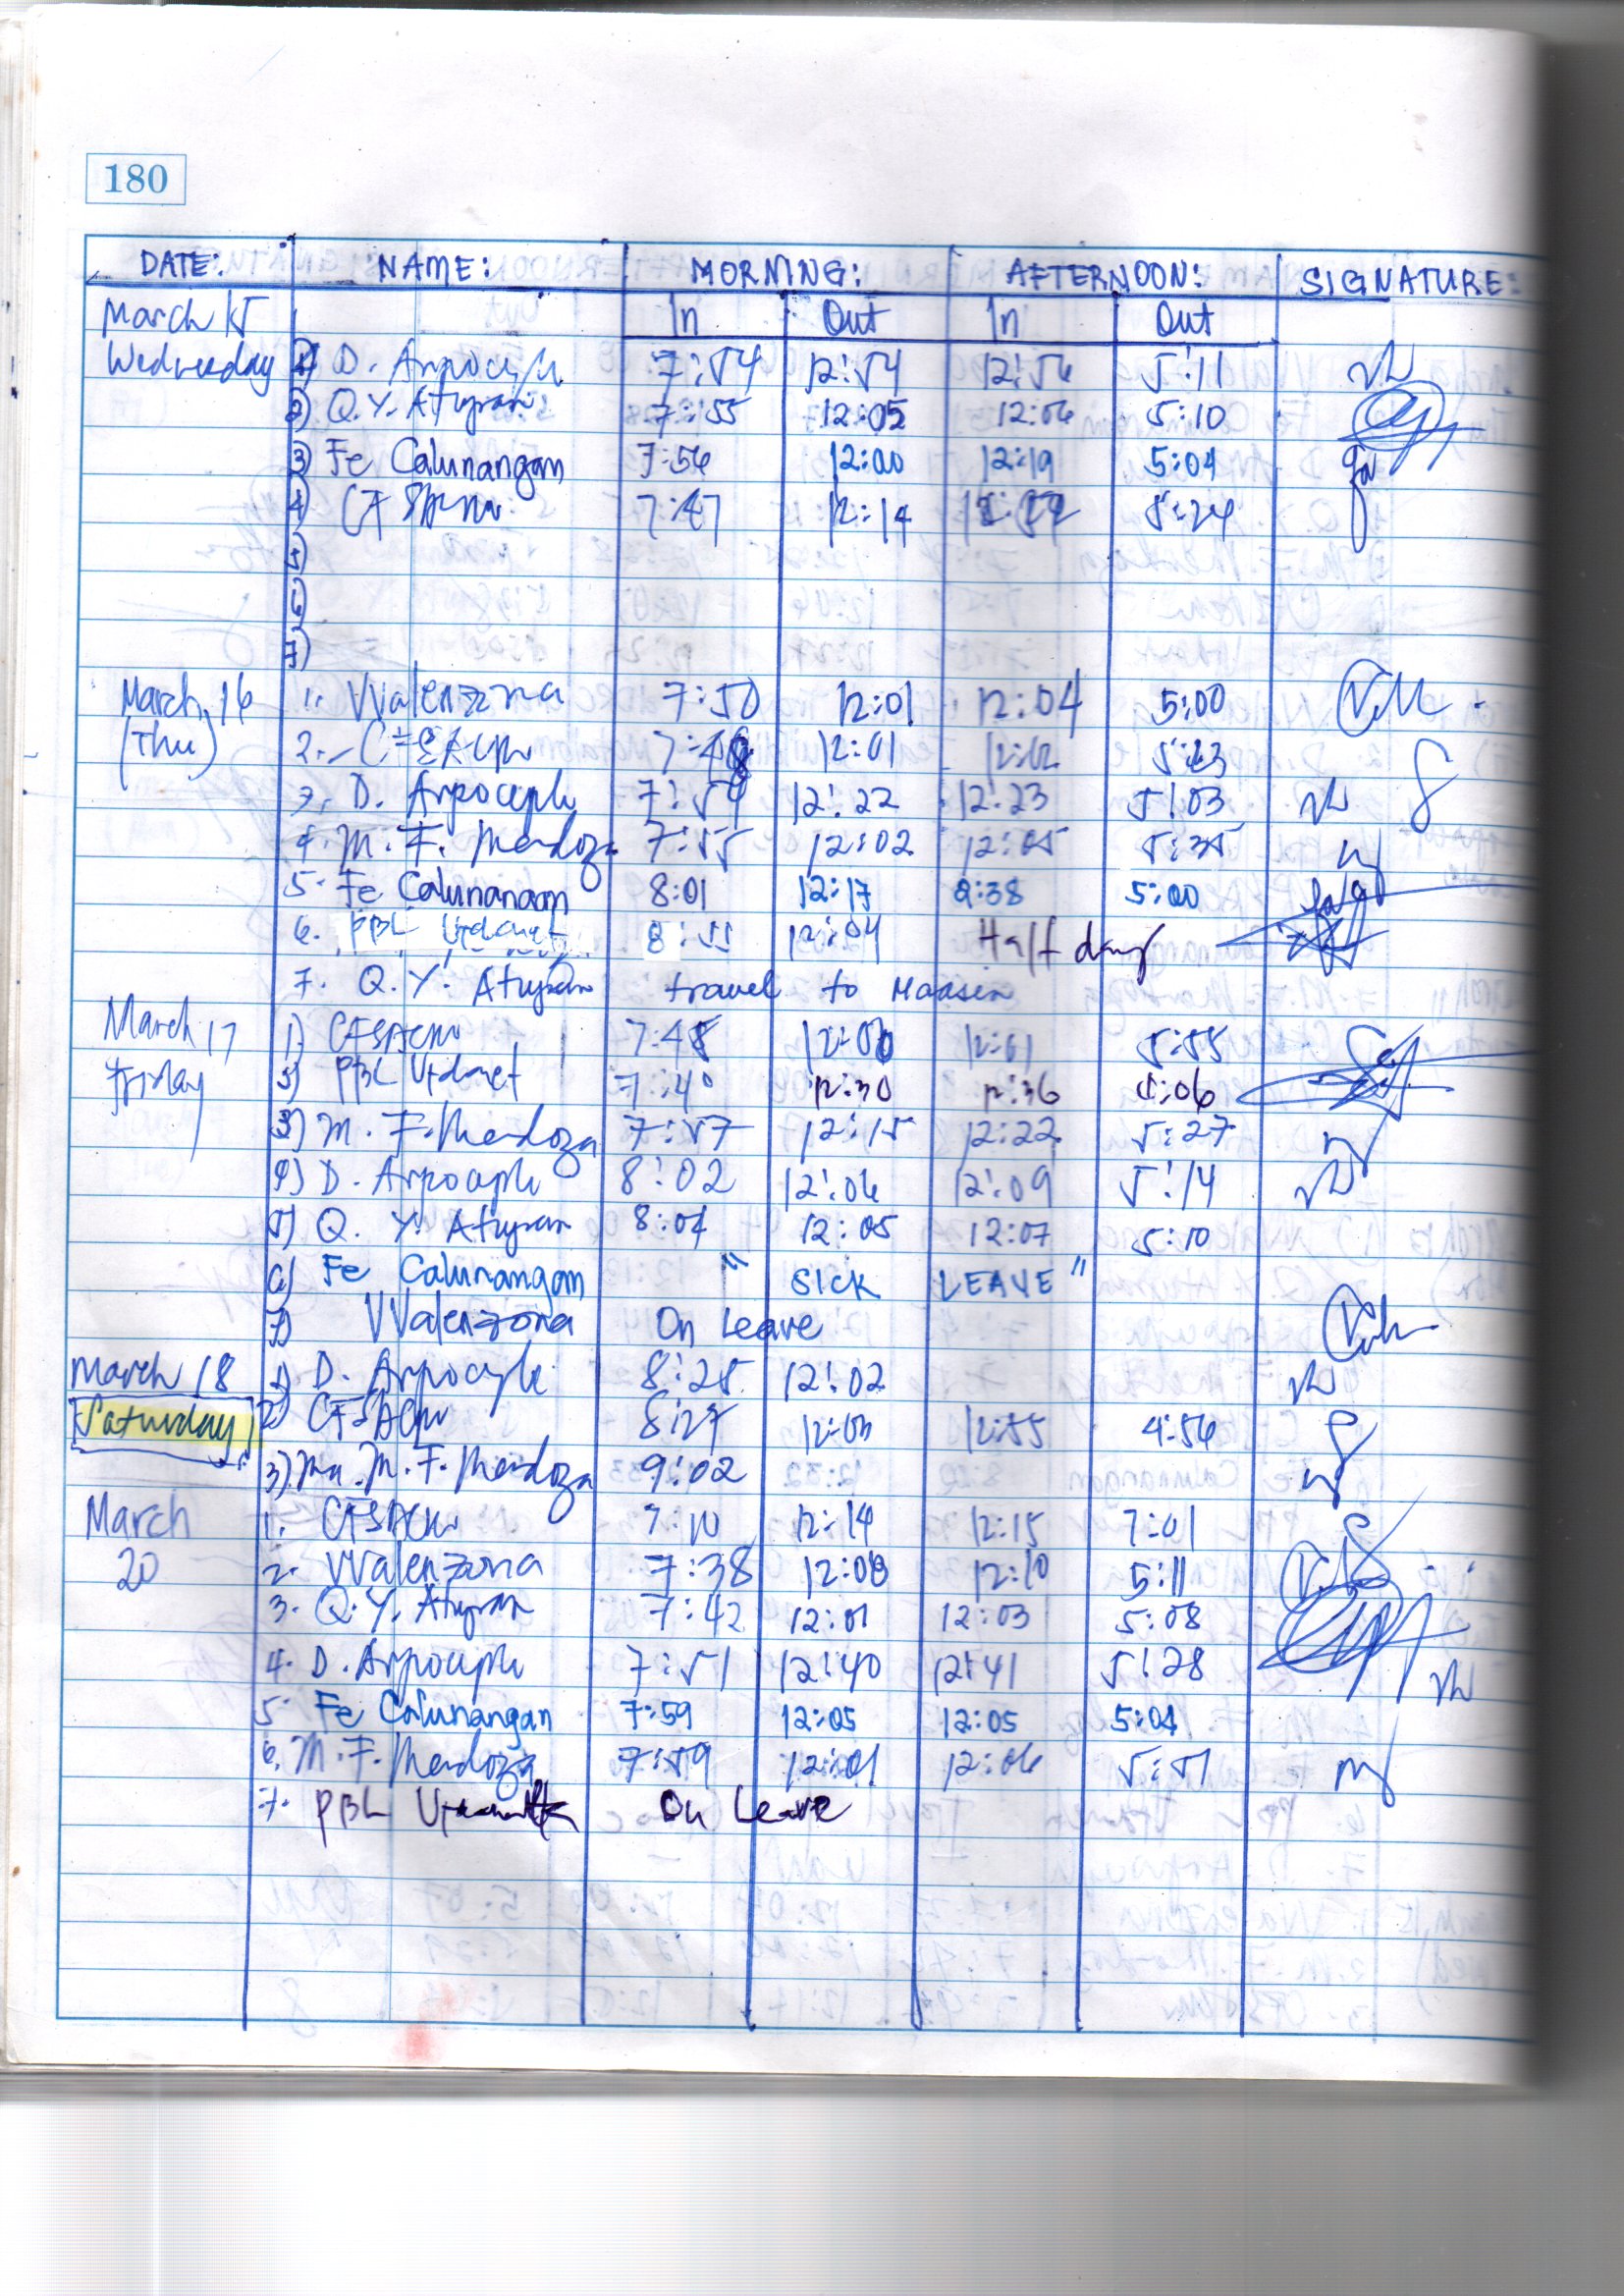 180
DATE: NAME: MORNING: AFTERNOON: SIGNATURE:
March 15 In Out In Out
Wednesday 1) D. 7:54 12:54 12:56 5:11
2) Q.Y. Atupan 7:55 12:05 12:06 5:10
3) Fe Calunangan 7:56 12:00 12:19 5:04
4) 7:47 12:14 5:24
5)
6)
7)
March 16 1. VValenzona 7:50 12:01 12:04 5:00
(Thu) 2. 12:01 12:02
3. D. 7:59 12:22 12:23 5:03
4. M. F. Mendoza 7:55 12:02 12:05 5:35
5. Fe Calunangan 8:01 12:17 5:00
6. PBL 8:55 12:04 Half day
7. Q. Y. Atupan travel to Maasin
March 17 1) 7:48 12:00 12:01 5:55
Friday PBL 7:40 12:30 12:36 5:06
3) M. F. Mendoza 7:57 12:15 12:22 5:27
4) D. 8:02 12:06 12:09 5:14
5) Q. Y. Atupan 8:04 12:05 12:07 5:10
6) Fe Calunangan " SICK LEAVE "
7) VValenzona On Leave
March 18 1) D. 8:25 12:02
Saturday 2) 8:27 12:03 12:55 4:56
3) Ma. M. F. Mendoza 9:02
March 1. 7:10 12:14 12:15 7:01
20 2. VValenzona 7:38 12:08 12:10 5:11
3. Q.Y. Atupan 7:42 12:01 12:03 5:08
4. D. 7:51 12:40 12:41 5:28
5. Fe Calunangan 7:59 12:05 12:05 5:04
6. M. F. Mendoza 7:59 12:01 12:06 5:51
7. PBL On Leave